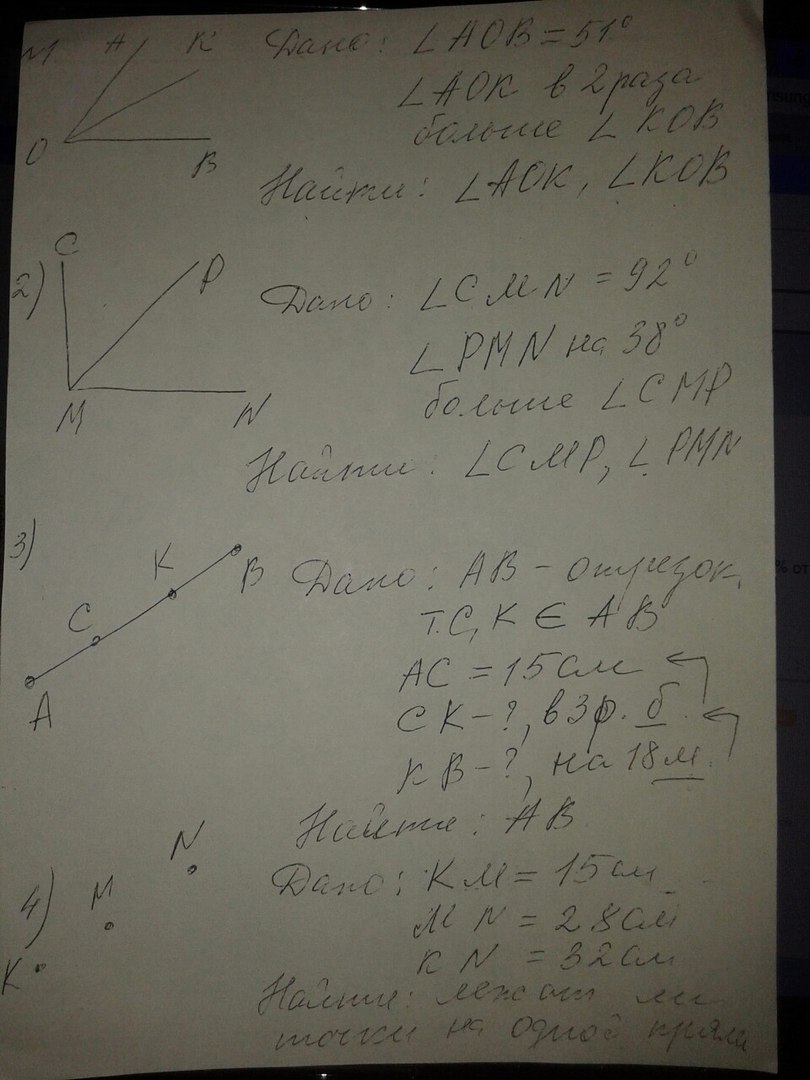 М А К Дано: ∠AOB = 51°
∠AOK в 2 раза
больше ∠KOB
O B
Найти: ∠AOK, ∠KOB
2) C P Дано: ∠CMN = 92°
∠PMN на 38°
больше ∠CMP
M N
Найти: ∠CMP, ∠PMN
3) K B Дано: AB - отрезок,
C т.C, K ∈ AB
A AC = 15 см
CK - ?, в 3 р. б.
KB - ?, на 18 м.
Найти: AB
4) N Дано: KM = 15 см
M MN = 28 см
K KN = 32 см
Найти: лежат ли
точки на одной прямой